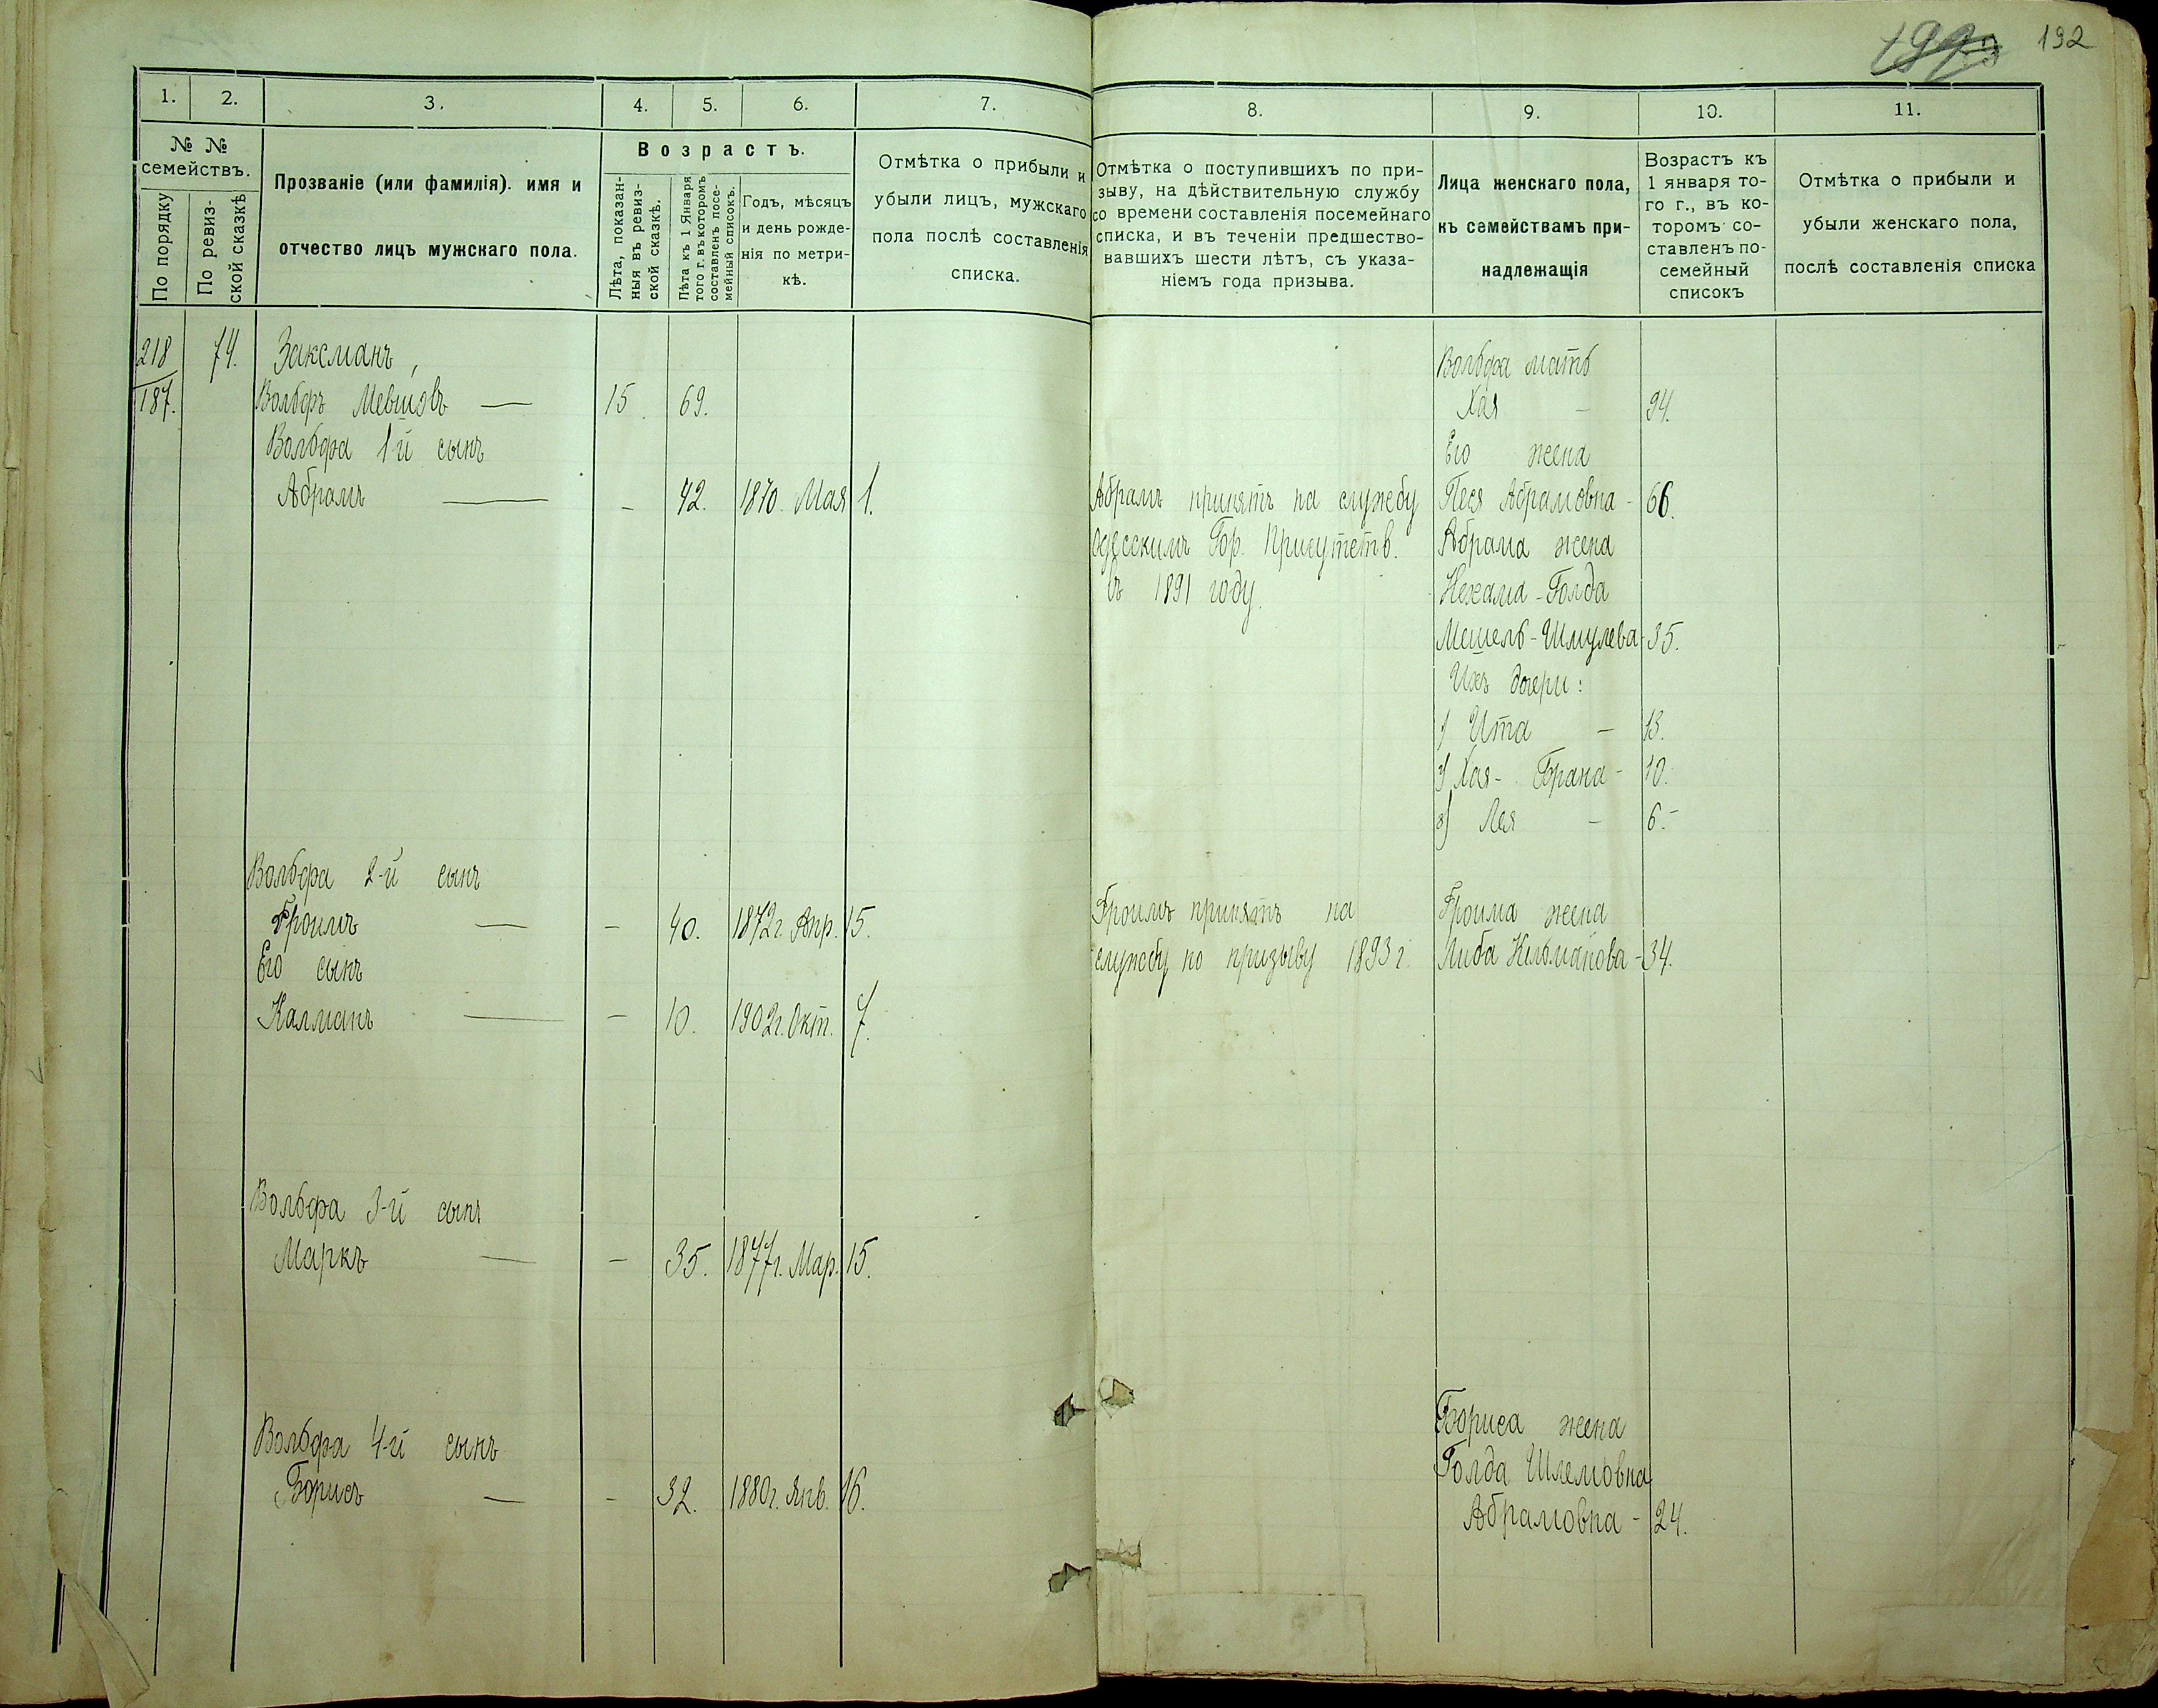 192
1. 2. 3. 4. 5. 6. 7.
№ № семействъ.
По порядку
По ревизской сказкѣ
Прозваніе (или фамилія). имя и
отчество лицъ мужскаго пола.
Возрастъ.
Лѣта, показанныя въ ревизской сказкѣ.
Лѣта къ 1 Января того г. въ которомъ составленъ посемейный списокъ.
Годъ, мѣсяцъ
и день рожде-
нія по метри-
кѣ.
Отмѣтка о прибыли и
убыли лицъ, мужскаго
пола послѣ составленія
списка.
218 74. Заксманъ,
187. Вольфъ Мевшовъ — 15. 69.
Вольфа 1й сынъ
Абрамъ — - 42. 1870. Мая 1.
Вольфа 2-й сынъ
Фроимъ — - 40. 1872г. Апр. 15.
Его сынъ
Калманъ — - 10. 1902г. Окт. 7.
Вольфа 3-й сынъ
Маркъ — - 35. 1877г. Мар. 15.
Вольфа 4-й сынъ
Борисъ — - 32. 1880г. Янв. 16.
8. 9. 10. 11.
Отмѣтка о поступившихъ по при-
зыву, на дѣйствительную службу
со времени составленія посемейнаго
списка, и въ теченіи предшество-
вавшихъ шести лѣтъ, съ указа-
ніемъ года призыва.
Лица женскаго пола,
къ семействамъ при-
надлежащія
Возрастъ къ
1 января то-
го г., въ ко-
торомъ со-
ставленъ по-
семейный
списокъ
Отмѣтка о прибыли и
убыли женскаго пола,
послѣ составленія списка
Вольфа мать
Хая - 94.
Его жена
Абрамъ принятъ на службу Песя Абрамовна - 66.
Одесскимъ Гор. Присутств. Абрама жена
въ 1891 году. Нехама-Голда
Мешель-Шмулева - 35.
Ихъ дочери:
1) Ита - 13.
2) Хая-Брана - 10.
3) Лея - 6.
Фроимъ принятъ на Фроима жена
службу по призыву 1893 г. Либа Кельманова - 34.
Бориса жена
Голда Шлемовна
Абрамовна - 24.